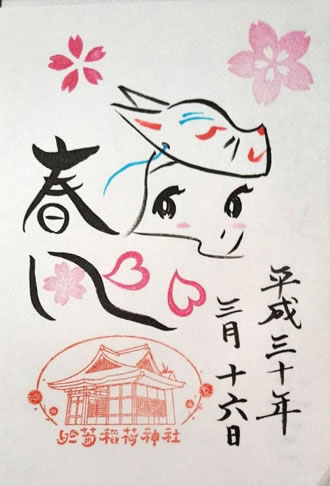 春心
平成三十年
三月十六日
於菊稲荷神社